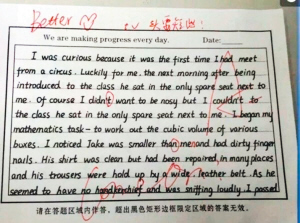 Better
We are making progress every day. Date:
I was curious because it was the first time I had meet
from a circus. Luckily for me. the next morning after being
introduced to the class he sat in the only spare seat next to
me. Of course I didn't want to be nosy but I couldn't to
the class he sat in the only spare seat next to me. I began my
mathematics task - to work out the cubic volume of various
boxes. I noticed Jake was smaller than me and had dirty finger
nails. His shirt was clean but had been repaired, in many places
and his trousers were hold up by a wide leather belt. As he
seemed to have no handkerchief and was sniffing loudly I passed
请在答题区域内作答，超出黑色矩形边框限定区域的答案无效。